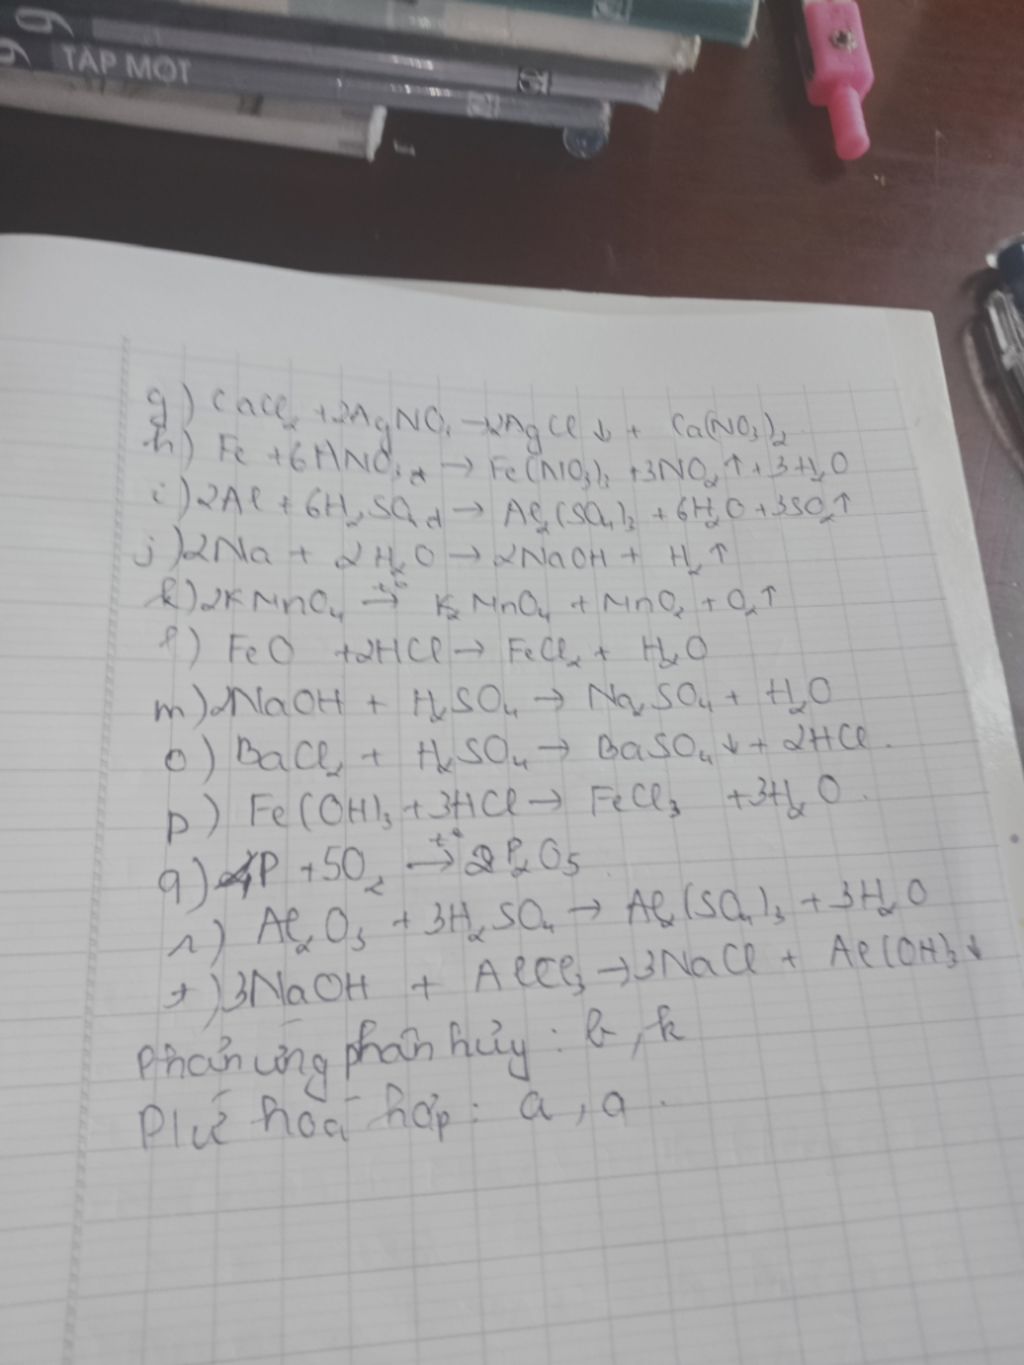 TẬP MỘT
g) CaCl₂ + 2AgNO₃ → 2AgCl ↓ + Ca(NO₃)₂
h) Fe + 6HNO₃đ → Fe(NO₃)₃ + 3NO₂ ↑ + 3H₂O
i) 2Al + 6H₂SO₄đ → Al₂(SO₄)₃ + 6H₂O + 3SO₂ ↑
j) 2Na + 2H₂O → 2NaOH + H₂ ↑
k) 2KMnO₄ →t° K₂MnO₄ + MnO₂ + O₂ ↑
l) FeO + 2HCl → FeCl₂ + H₂O
m) 2NaOH + H₂SO₄ → Na₂SO₄ + H₂O
o) BaCl₂ + H₂SO₄ → BaSO₄ ↓ + 2HCl.
p) Fe(OH)₃ + 3HCl → FeCl₃ + 3H₂O.
q) 4P + 5O₂ →t° 2P₂O₅.
r) Al₂O₃ + 3H₂SO₄ → Al₂(SO₄)₃ + 3H₂O
t) 3NaOH + AlCl₃ → 3NaCl + Al(OH)₃ ↓
Phản ứng phân hủy: b, k
Pứ hoá hợp: a, q.